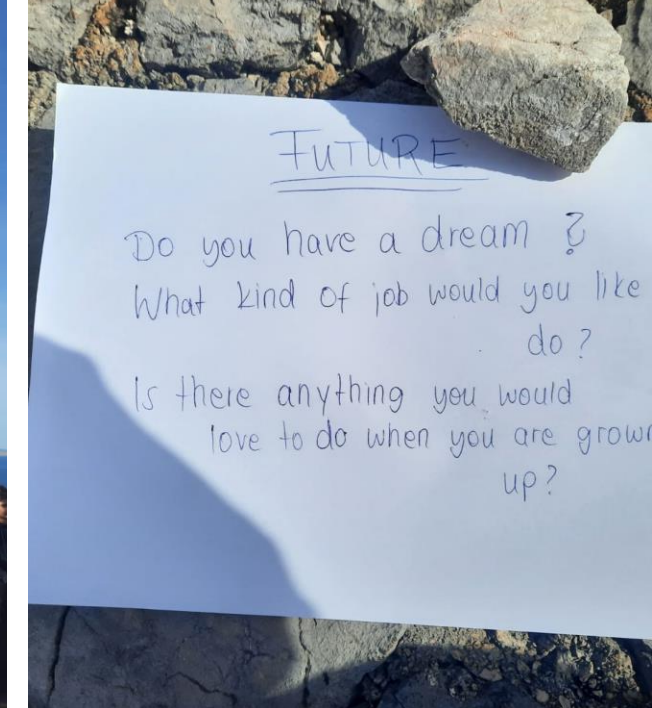 FUTURE
Do you have a dream ?
What kind of job would you like
do ?
Is there anything you would
love to do when you are grown
up?